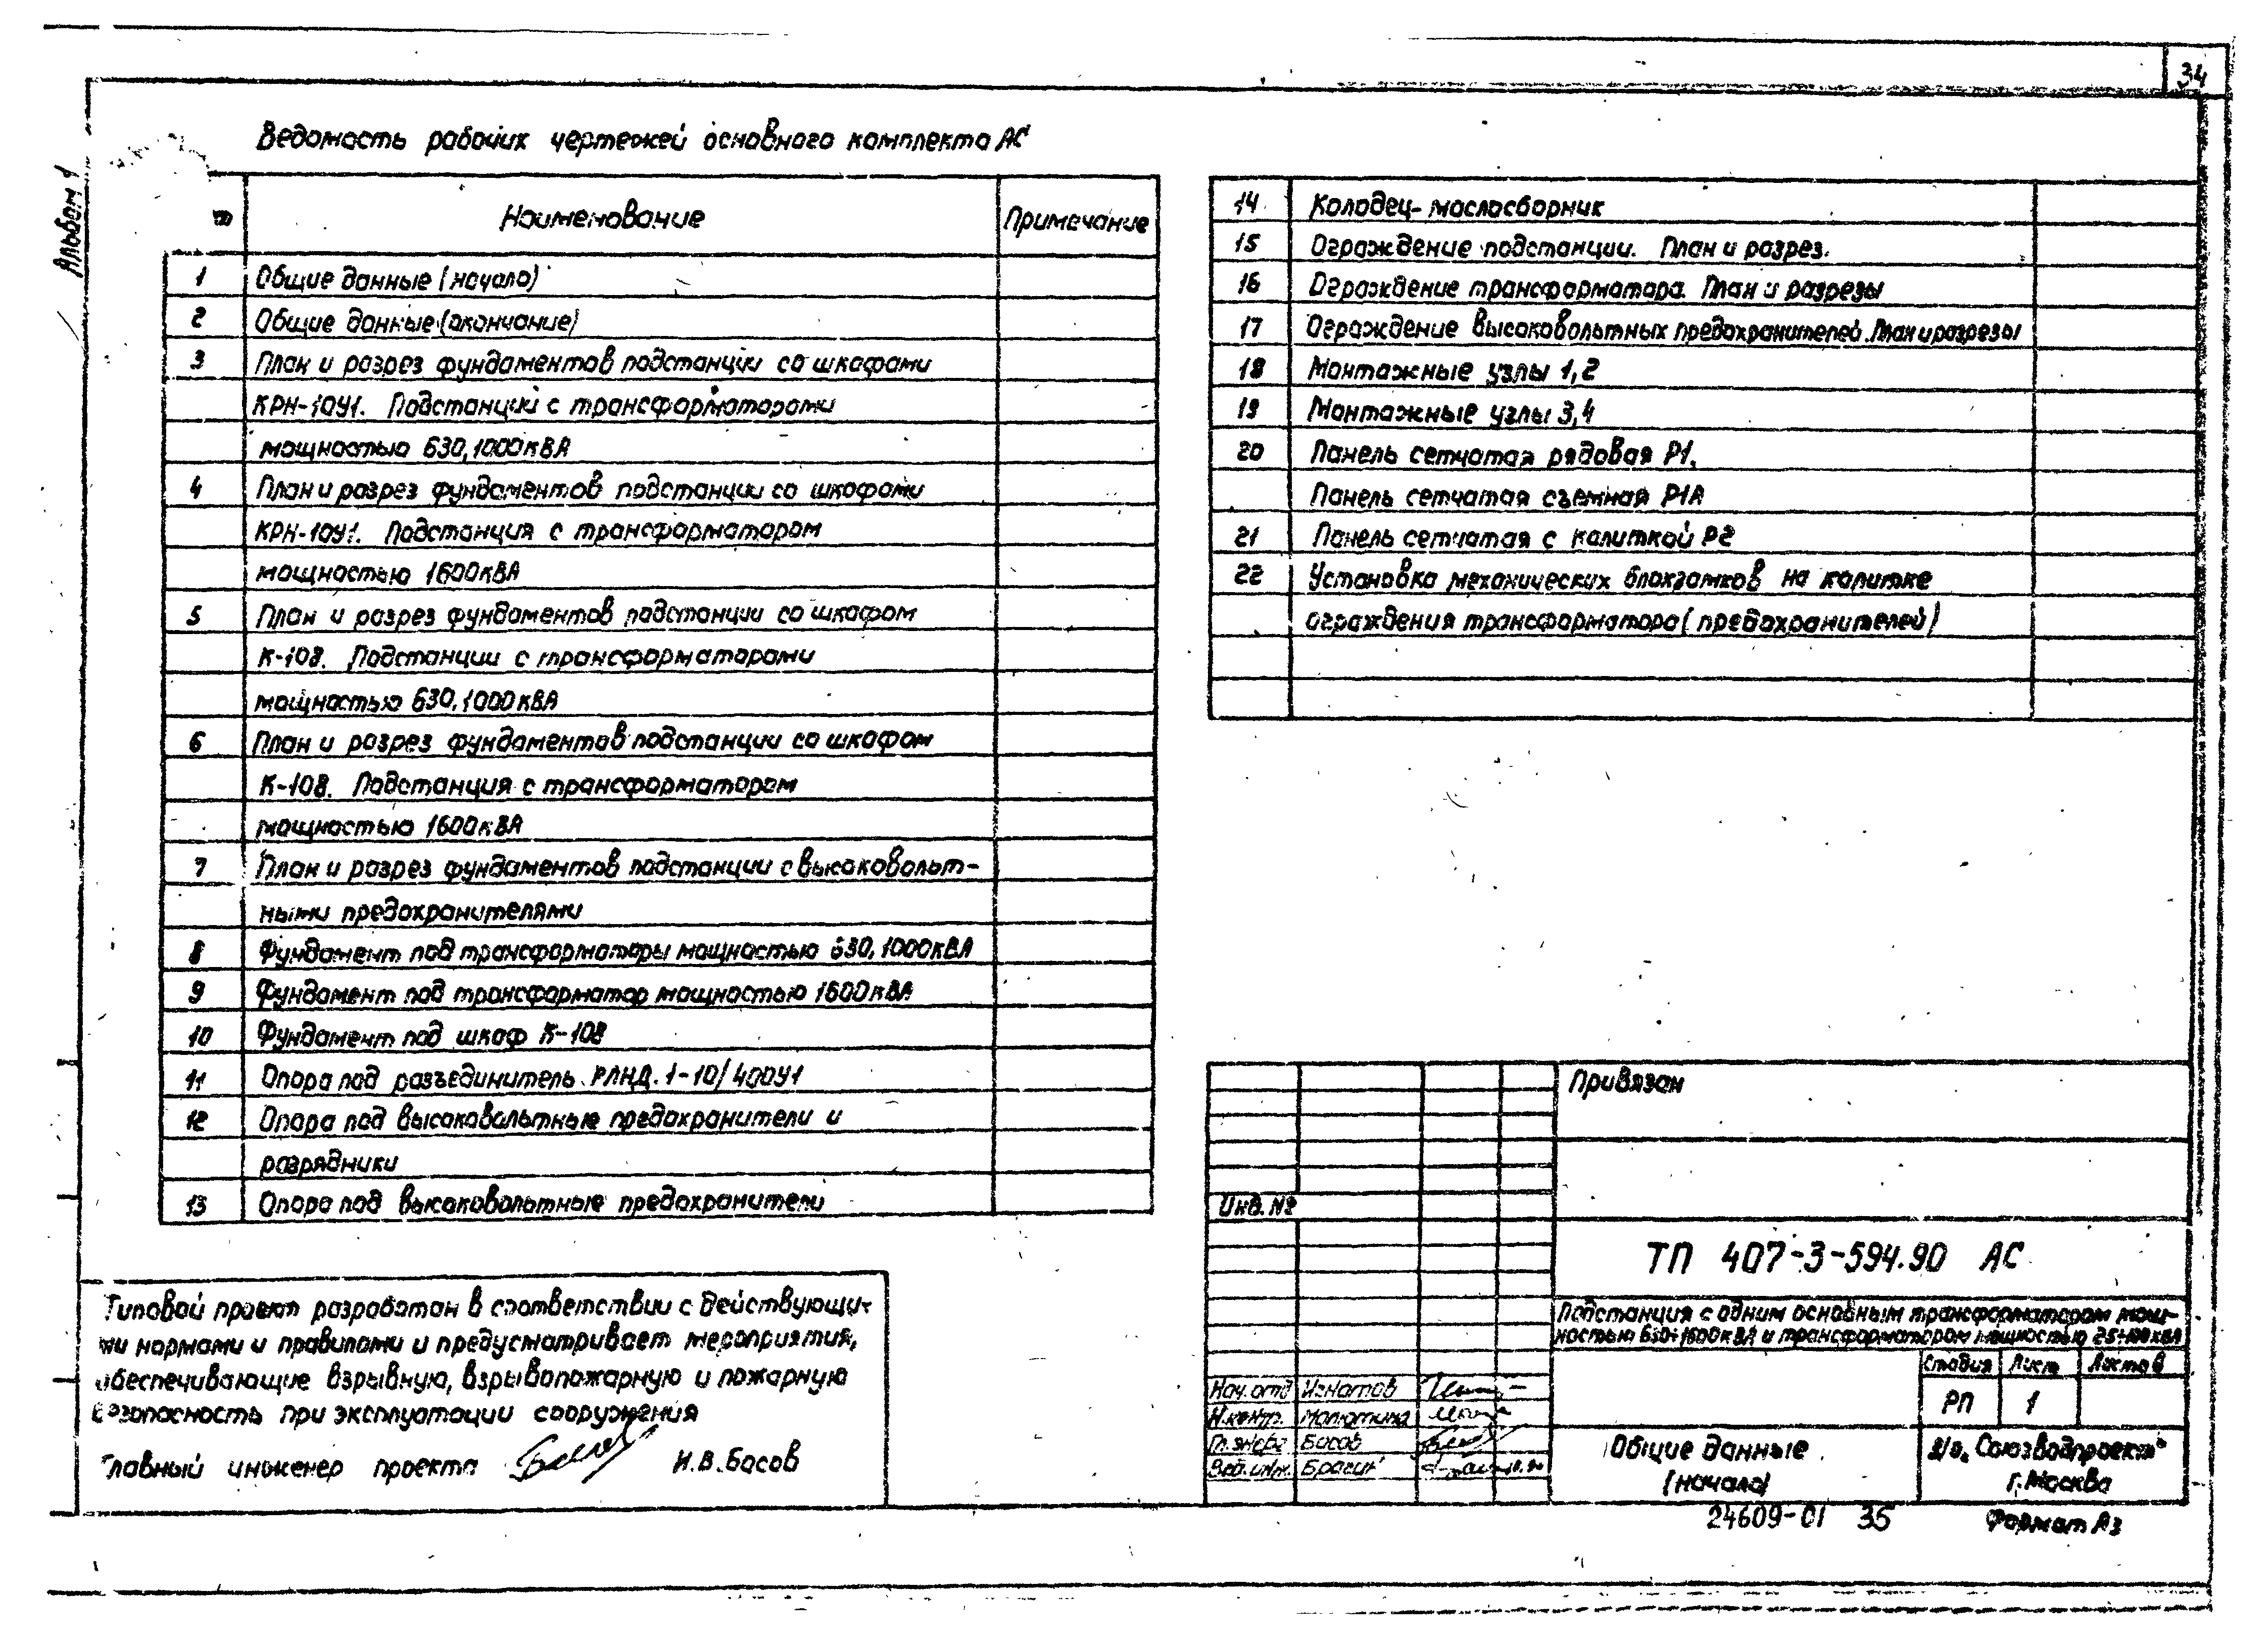 34
Альбом 1
Ведомость рабочих чертежей основного комплекта АС
Наименование Примечание
1 Общие данные (начало)
2 Общие данные (окончание)
3 План и разрез фундаментов подстанции со шкафами
КРН-10У1. Подстанции с трансформаторами
мощностью 630, 1000 кВА
4 План и разрез фундаментов подстанции со шкафами
КРН-10У1. Подстанция с трансформатором
мощностью 1600 кВА
5 План и разрез фундаментов подстанции со шкафом
К-108. Подстанции с трансформаторами
мощностью 630, 1000 кВА
6 План и разрез фундаментов подстанции со шкафом
К-108. Подстанция с трансформатором
мощностью 1600 кВА
7 План и разрез фундаментов подстанции с высоковольт-
ными предохранителями
8 Фундамент под трансформаторы мощностью 630, 1000 кВА
9 Фундамент под трансформатор мощностью 1600 кВА
10 Фундамент под шкаф К-108
11 Опора под разъединитель РЛНД. 1-10/400У1
12 Опора под высоковольтные предохранители и
разрядники
13 Опора под высоковольтные предохранители
14 Колодец-маслосборник
15 Ограждение подстанции. План и разрез.
16 Ограждение трансформатора. План и разрезы
17 Ограждение высоковольтных предохранителей. План и разрезы
18 Монтажные узлы 1, 2
19 Монтажные узлы 3, 4
20 Панель сетчатая рядовая Р1.
Панель сетчатая съемная Р1А
21 Панель сетчатая с калиткой Р2
22 Установка механических блокзамков на калитке
ограждения трансформатора (предохранителей)
Типовой проект разработан в соответствии с действующи-
ми нормами и правилами и предусматривает мероприятия,
обеспечивающие взрывную, взрывопожарную и пожарную
безопасность при эксплуатации сооружения
Главный инженер проекта И.В. Басов
Привязан
Инв. №
ТП 407-3-594.90 АС
Подстанция с одним основным трансформатором мощ-
ностью 630÷1600 кВА и трансформатором мощностью 25÷100 кВА
Стадия Лист Листов
РП 1
Нач. отд Игнатов
Н.контр. Малютина
Гл. энерг Басов
Вед. инж. Брагин
Общие данные
(начало)
в/о „Союзводпроект"
г. Москва
24609-01 35
Формат А3